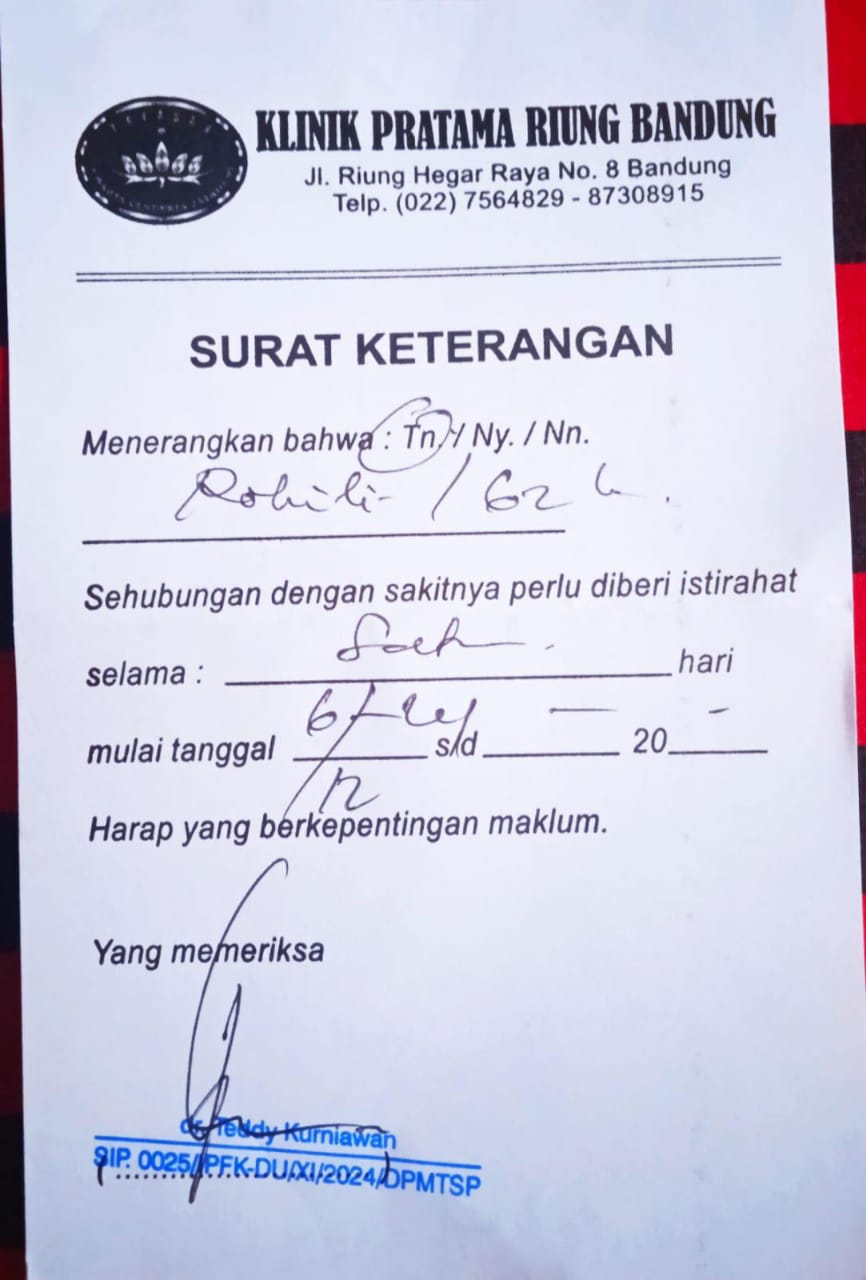 KLINIK PRATAMA RIUNG BANDUNG
Jl. Riung Hegar Raya No. 8 Bandung
Telp. (022) 7564829 - 87308915
SURAT KETERANGAN
Menerangkan bahwa : Tn. / Ny. / Nn.
/ 62
Sehubungan dengan sakitnya perlu diberi istirahat
selama : hari
mulai tanggal 6/ s/d — 20 -
12
Harap yang berkepentingan maklum.
Yang memeriksa
dr. Teddy Kurniawan
SIP. 0025/IPFK-DU/XI/2024/DPMTSP